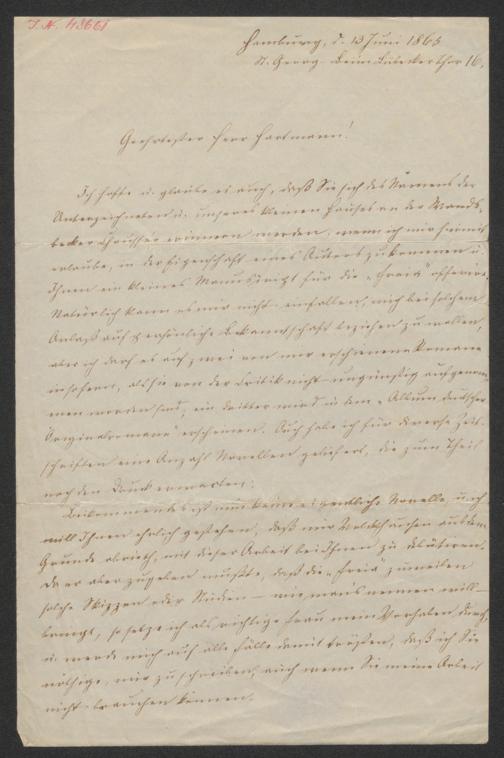 I. N. 43661
Hamburg, d. 13 Juni 1865
St. Georg. Beim Lübeckerthor 16.
Geehrtester Herr Hartmann!
Ich hoffe u. glaube es auch, daß Sie sich des Namens der
Unterzeichneten u. unseres kleinen Hauses an der Wands-
becker Chaussée erinnern werden, wenn ich mir hiermit
erlaube, in der Eigenschaft eines Autors zu kommen u.
Ihnen ein kleines Manuscript für die „Freia" offerire.
Natürlich kann es mir nicht einfallen, mich bei solchem
Anlaß auf persönliche Bekanntschaft beziehen zu wollen,
aber ich darf es auf zwei von mir erschienene Romane
insofern, als sie von der Kritik nicht ungünstig aufgenom-
men worden sind, ein dritter wird in dem „Album deutscher
Originalromane" erscheinen. Auch habe ich für diverse Zeit-
schriften eine Anzahl Novellen geliefert, die zum Theil
noch den Druck erwarten.
Beikommendes ist nun keine eigentliche Novelle, u. ich
will Ihnen ehrlich gestehen, daß mir aus dem
Grunde abrieth, mit dieser Arbeit bei Ihnen zu debütiren.
Da er aber zugeben mußte, daß die „Freia" zuweilen
solche Skizzen oder Studien – wie man's nennen will –
bringt, so setze ich als richtige Frau mein Vorhaben durch,
u. werde mich auf alle Fälle damit trösten, daß ich Sie
nöthige, mir zu schreiben, auch wenn Sie meine Arbeit
nicht brauchen können.